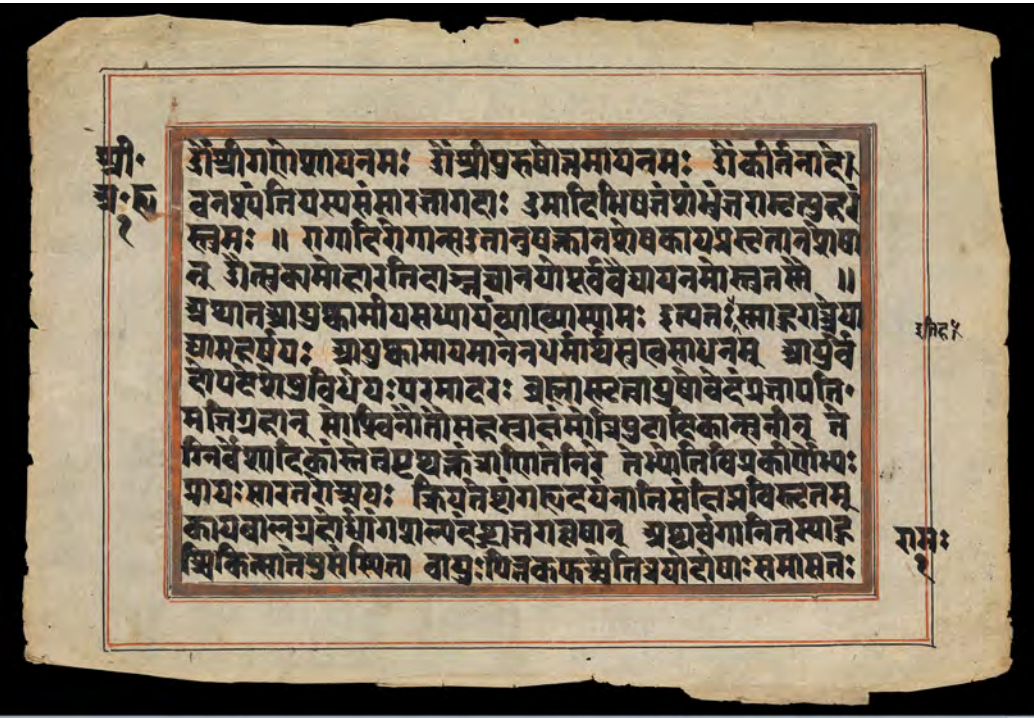 श्री॰
अ॰हृ
१
ॐ श्रीगणेशायनमः ॐ श्रीपुरुषोत्तमायनमः ॐ कीर्तनादे।
वनश्यंतियस्यसंसारजागदाः तमादिभिषजंशंभुंजरामृत्युहरं
स्तुमः ॥ रागादिरोगान्सततानुषक्तानशेषकायप्रसृतानशेषा
न् औत्सुक्यमोहारतिदाञ्जघानयोपूर्ववैद्यायनमोस्तुतस्मै ॥
अथातआयुष्कामीयमध्यायंव्याख्यास्यामः इत्यतःस्माहुरात्रेया
द्यामहर्षयः आयुष्कामायमानेनधर्मार्थसुखसाधनम् आयुर्वे
दोपदेशेषुविधेयःपरमादरः ब्रह्मास्मृत्वायुषोवेदंप्रजापति॰
मजिग्रहान् सोश्विनौतौसहस्राक्षंसोत्रिपुत्रादिकान्मुनीन् ते
ग्निवेशादिकांस्तेतुपृथक्तंत्राणितेनिरे तेभ्योतिविप्रकीर्णेभ्यः
प्रायःसारतरोच्चयः क्रियतेष्टांगहृदयंनातिसंक्षिप्तविस्तृतम्
कायबालग्रहोर्ध्वांगशल्यदंष्ट्राजरावृषान् अष्टावंगानितस्याहु
श्चिकित्सातेषुसंस्थिता वायुःपित्तकफश्चेतित्रयोदोषाःसमासतः
रामः
१